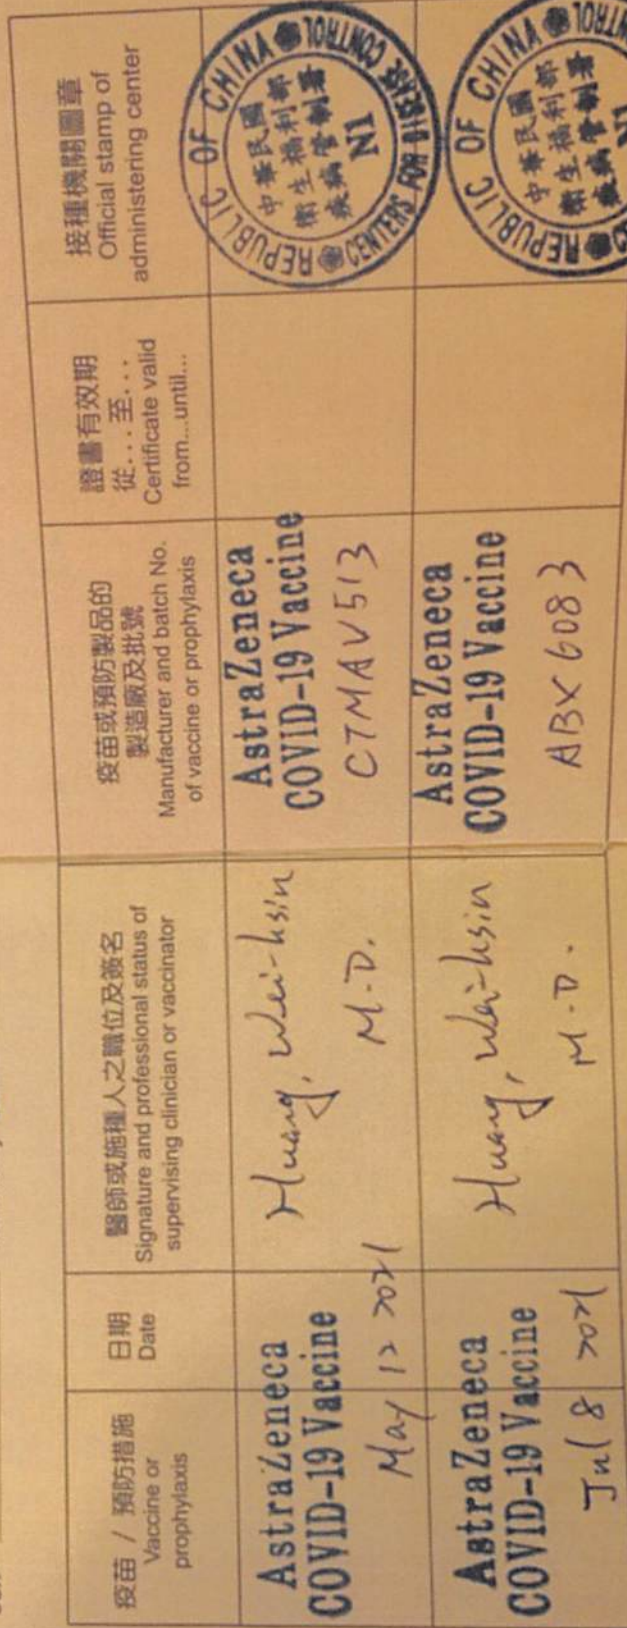 疫苗 / 預防措施
Vaccine or
prophylaxis
日期
Date
醫師或施種人之職位及簽名
Signature and professional status of
supervising clinician or vaccinator
疫苗或預防製品的
製造廠及批號
Manufacturer and batch No.
of vaccine or prophylaxis
證書有效期
從...至...
Certificate valid
from...until...
接種機關圖章
Official stamp of
administering center
AstraZeneca
COVID-19 Vaccine
May 12 2021
Huang, Wei-hsin
M.D.
AstraZeneca
COVID-19 Vaccine
CTMAV513
REPUBLIC OF CHINA
CENTERS FOR DISEASE CONTROL
中華民國
衛生福利部
疾病管制署
N1
AstraZeneca
COVID-19 Vaccine
Jul 8 2021
Huang, Wei-hsin
M.D.
AstraZeneca
COVID-19 Vaccine
ABX6083
REPUBLIC OF CHINA
中華民國
衛生福利部
疾病管制署
N1